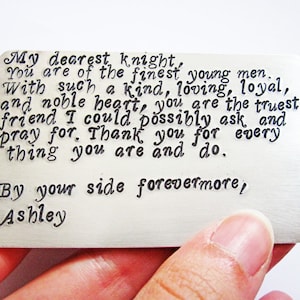 My dearest knight,
You are of the finest young men.
With such a kind, loving, loyal,
and noble heart, you are the truest
friend I could possibly ask and
pray for. Thank you for every
thing you are and do.
By your side forevermore,
Ashley